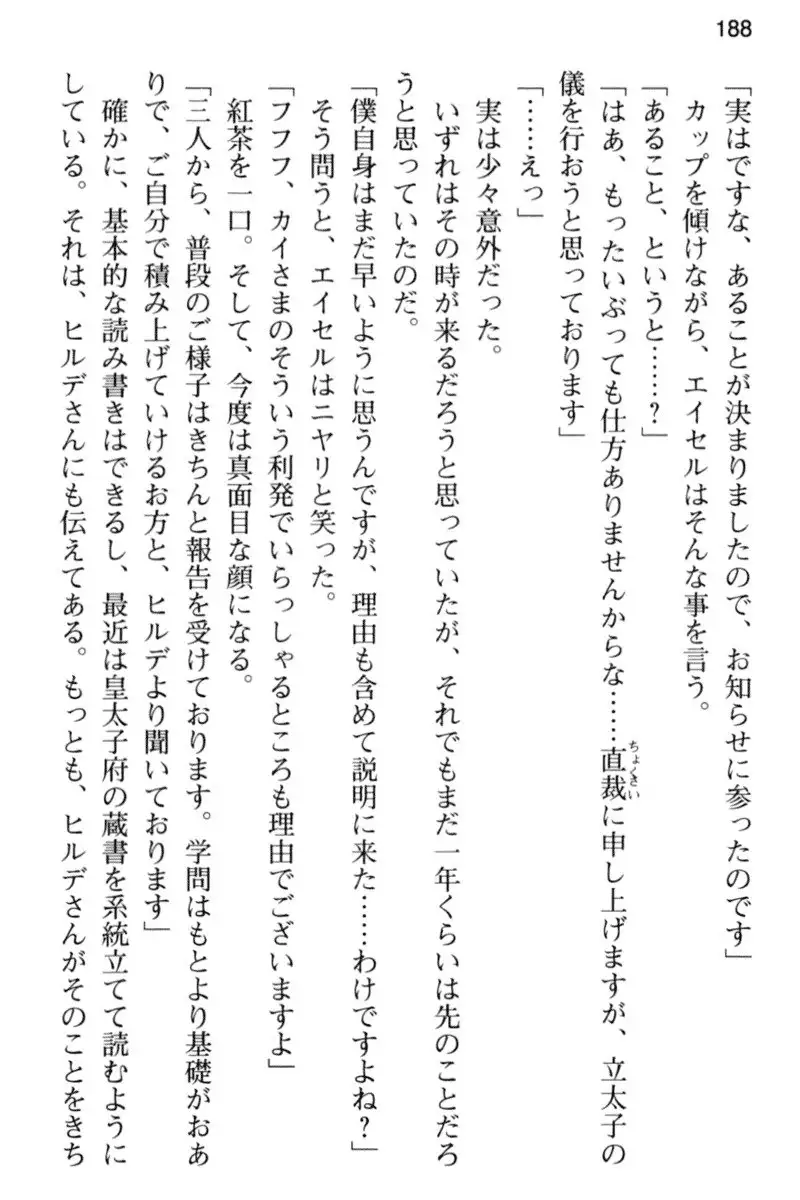 188
「実はですな、あることが決まりましたので、お知らせに参ったのです」
カップを傾けながら、エイセルはそんな事を言う。
「あること、というと……？」
「はあ、もったいぶっても仕方ありませんからな……直裁に申し上げますが、立太子の
ちょくさい
儀を行おうと思っております」
「……えっ」
実は少々意外だった。
いずれはその時が来るだろうと思っていたが、それでもまだ一年くらいは先のことだろ
うと思っていたのだ。
「僕自身はまだ早いように思うんですが、理由も含めて説明に来た……わけですよね？」
そう問うと、エイセルはニヤリと笑った。
「フフフ、カイさまのそういう利発でいらっしゃるところも理由でございますよ」
紅茶を一口。そして、今度は真面目な顔になる。
「三人から、普段のご様子はきちんと報告を受けております。学問はもとより基礎がおあ
りで、ご自分で積み上げていけるお方と、ヒルデより聞いております」
確かに、基本的な読み書きはできるし、最近は皇太子府の蔵書を系統立てて読むように
している。それは、ヒルデさんにも伝えてある。もっとも、ヒルデさんがそのことをきち